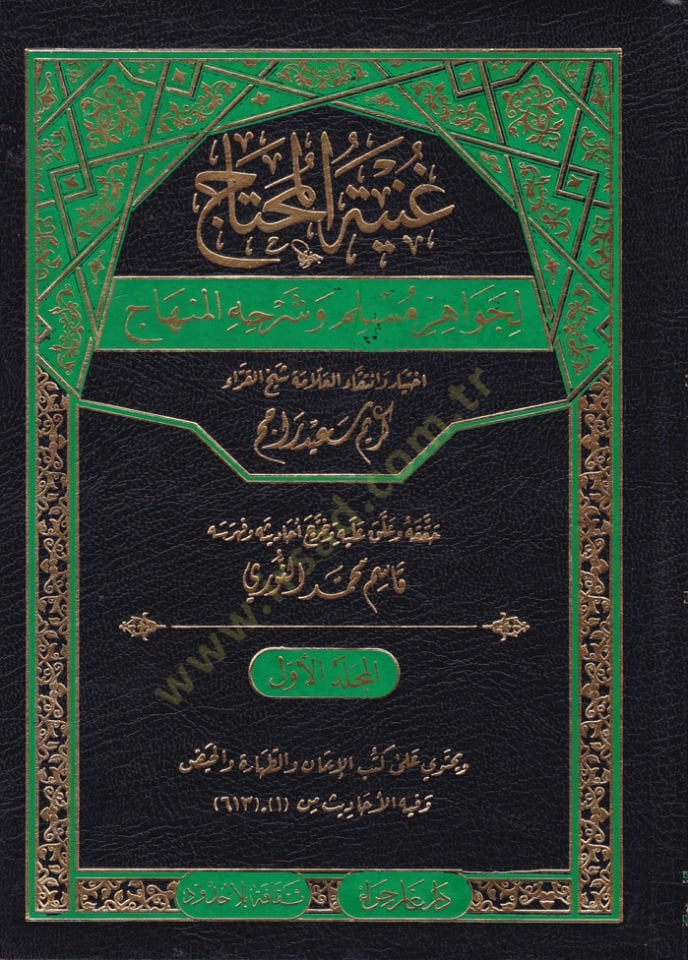 غُنْيَةُ المُحْتَاجِ
لِجَوَاهِرِ مُسْلِم وَشَرْحِهِ المِنهَاج
اختيار وانتقاء العلامة شيخ القراء
كريّم سَعيد رَاجح
حَقَّقَهُ وَعَلَّقَ عَلَيهِ وَخَرَّجَ أحَاديثه وفهرسه
قاسم محمد النوري
المجَلدُ الأوّل
ويحتوي عَلىٰ كتُب الإيمان والطهَارة والحَيض
وَفيه الأحَاديث مِن (١) - (٦١٣)
دَار غَار حِرَاء
ثقَافة بلا حُدود
www.irsad.com.tr